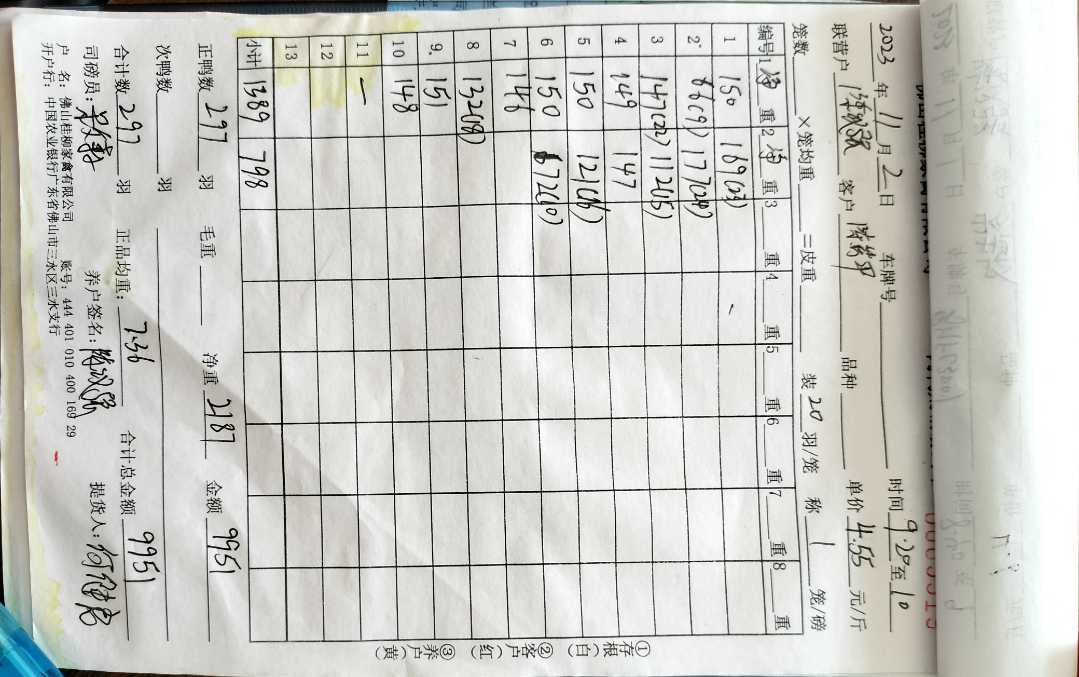 2023 年 11 月 2 日 车牌号 时间 9.20 至 10
联营户 客户 品种 单价 4.55 元/斤
笼数 ×笼均重 =皮重 装 20 羽/笼 称 1 笼/磅
编号 1 净 重 2 净 重 3 重 4 重 5 重 6 重 7 重 8 重
1 150 169(23)
2 66(9) 177(24)
3 147(22) 112(15)
4 149 147
5 150 121(16)
6 150 72(10)
7 148
8 132(18)
9. 151
10 148
11 一
12
13
小计 1389 798
正鸭数 297 羽 毛重 净重 2187 金额 9951
次鸭数 羽
合计数 297 羽 正品均重: 7.36 合计总金额 9951
司磅员: 养户签名: 提货人:
户 名: 佛山桂柳家禽有限公司 账号: 444 401 010 400 169 29
开户行: 中国农业银行广东省佛山市三水区三水支行
①存根(白) ②客户(红) ③养户(黄)